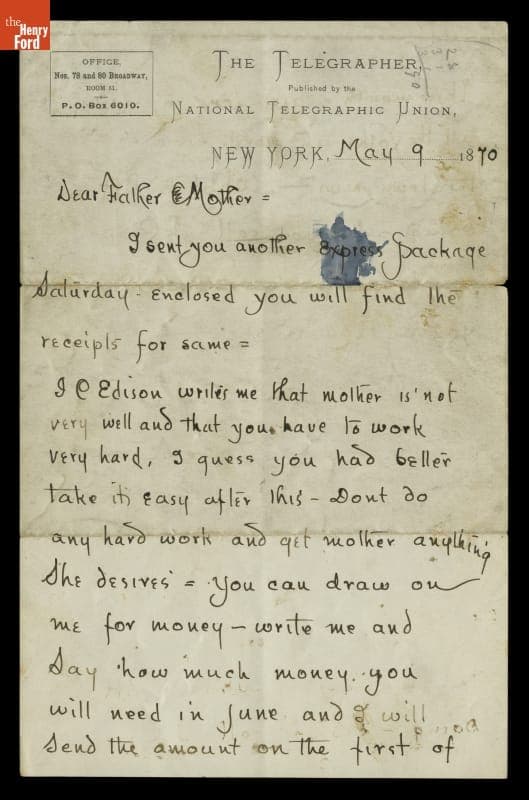 the
Henry
Ford
OFFICE,
Nos. 78 and 80 BROADWAY,
ROOM 51.
P. O. Box 6010.
THE TELEGRAPHER,
Published by the
NATIONAL TELEGRAPHIC UNION,
NEW YORK, May 9 1870
Dear Father & Mother =
I sent you another Express package
Saturday - Enclosed you will find the
receipts for same =
I C Edison writes me that mother is not
very well and that you have to work
very hard, I guess you had better
take it easy after this - Dont do
any hard work and get mother anything
She desires = you can draw on
me for money - write me and
Say how much money you
will need in June and I will
Send the amount on the first of